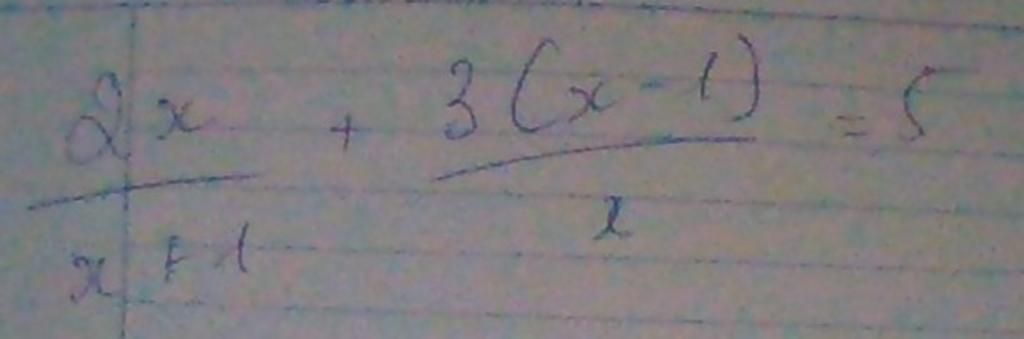 2x/(x+1) + 3(x-1)/x = 5